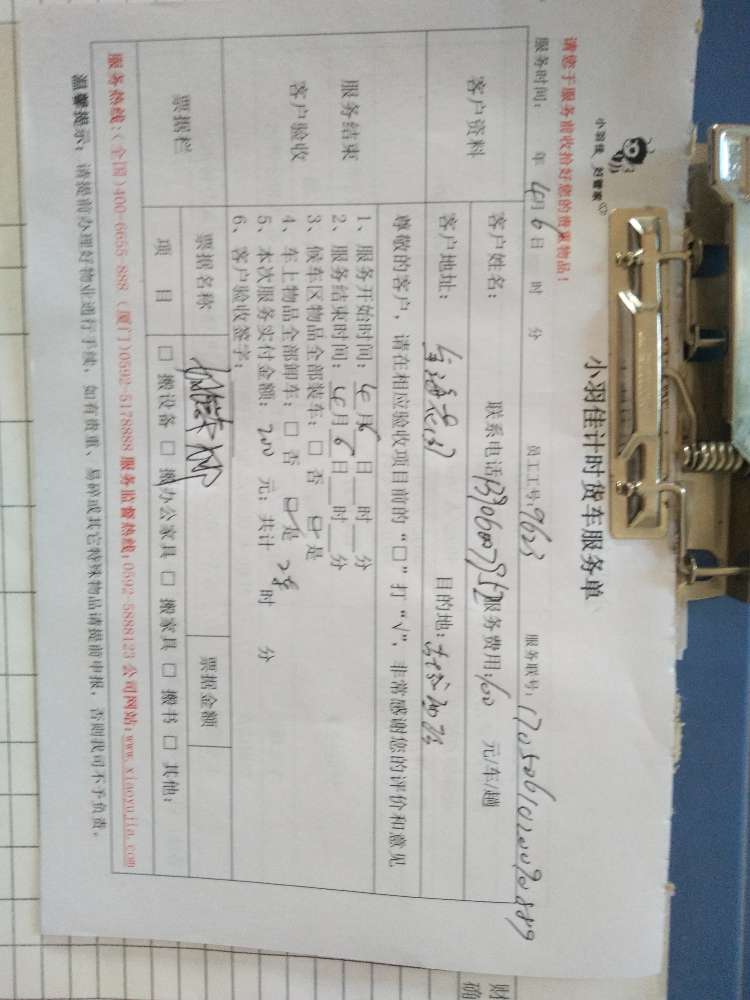 小羽佳 好管家
小羽佳计时货车服务单
请您于服务前收拾好您的贵重物品！
服务时间： 年 4月 6日 时 分 员工工号：9623 服务联号：
客户资料
客户姓名： 联系电话 服务费用： 元/车/趟
客户地址： 目的地：
服务结束
客户验收
尊敬的客户，请在相应验收项目前的“□”打“√”，非常感谢您的评价和意见
1、服务开始时间：4月6日__时__分
2、服务结束时间：4月6日__时__分
3、候车区物品全部装车：□ 否 □ 是
4、车上物品全部卸车：□ 否 □ 是
5、本次服务实付金额：200 元；共计 时 分
6、客户验收签字：
票据栏
票据名称 票据金额
项 目 □ 搬设备 □ 搬办公家具 □ 搬家具 □ 搬书 □ 其他：
服务热线：（全国）400-6655-888 （厦门）0592-5178888 服务监督热线：0592-5888123 公司网站：www.xiaoyujia.com
温馨提示：请提前办理好物业通行手续，如有贵重、易碎或其它特殊物品请提前申报，否则我司不予负责。
财
确